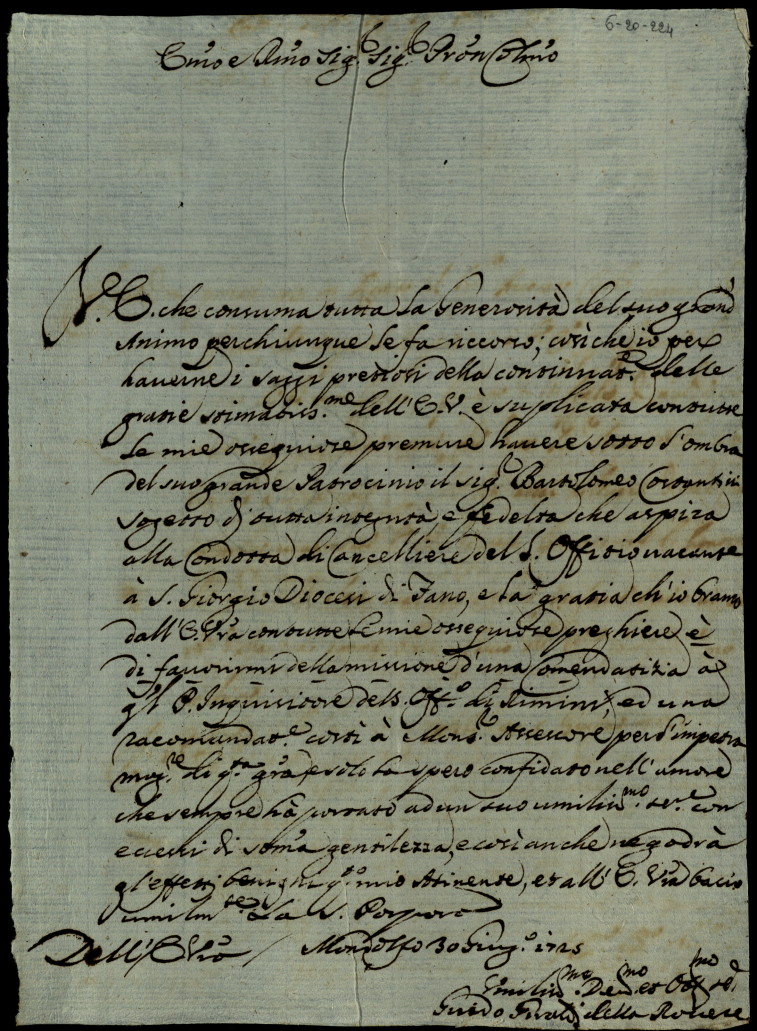 6-20-224
Emo e Rmo Sig.r Sig.r Pron Colmo
V.E. che consuma tutta la Generosità del suo grand
Animo per chiunque le fa riccorso, così che io per
haverne i saggi pretiosi della continuat.e delle
gratie stimatiss.me dell'E.V. è suplicata con tutte
le mie ossequiose premure havere sotto l'ombra
del suo grande Patrocinio il sig.r Bartolomeo
sogetto di tutta integrità e fedeltà che aspira
alla Condotta di Cancelliere del S. Offitio vacante
à S. Giorgio Diocesi di Fano, e la gratia ch'io bramo
dall'E. Vra con tutte le mie ossequiose preghiere è
di favorirmi della missione d'una Comendatizia à
P. Inquisitore del S. Off.o di Rimini, ed una
racomandat.e costì à Mons.r Assessore per l'impetra
di q.ta gra, e solo la spero confidato nell'amore
che sempre hà portato ad un suo umiliss.mo ser.e con
ecessi di soma gentilezza, e così anche ne godrà
gl'effetti benigni q.to mio Atinente, et all'E. Vra bacio
umilm.te la S. Porpora
Dell'E Vra / Mondolfo 30 Giug.o 1725
Umiliss.mo Dev.mo et Obl.mo
Guido della Rovere